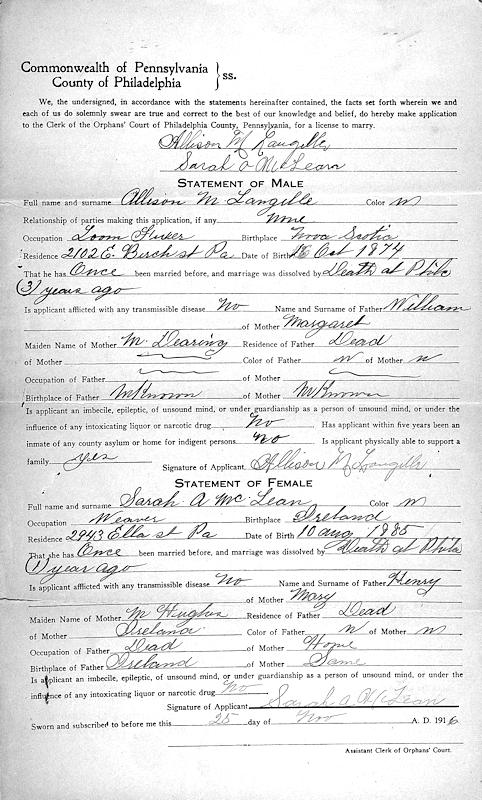 Commonwealth of Pennsylvania
County of Philadelphia } ss.
We, the undersigned, in accordance with the statements hereinafter contained, the facts set forth wherein we and
each of us do solemnly swear are true and correct to the best of our knowledge and belief, do hereby make application
to the Clerk of the Orphans' Court of Philadelphia County, Pennsylvania, for a license to marry.
Allison M Langille
Sarah A McLean
STATEMENT OF MALE
Full name and surname Allison M Langille Color W
Relationship of parties making this application, if any None
Occupation Loom Fixer Birthplace Nova Scotia
Residence 2102 E. Birch st Pa Date of Birth 16 Oct 1874
That he has Once been married before, and marriage was dissolved by Death at Phila
(3) years ago
Is applicant afflicted with any transmissible disease No Name and Surname of Father William
of Mother Margaret
Maiden Name of Mother M. Dearing Residence of Father Dead
of Mother Color of Father W of Mother W
Occupation of Father of Mother
Birthplace of Father UnKnown of Mother UnKnown
Is applicant an imbecile, epileptic, of unsound mind, or under guardianship as a person of unsound mind, or under the
influence of any intoxicating liquor or narcotic drug No Has applicant within five years been an
inmate of any county asylum or home for indigent persons No Is applicant physically able to support a
family yes Signature of Applicant Allison M Langille
STATEMENT OF FEMALE
Full name and surname Sarah A McLean Color W
Occupation Weaver Birthplace Ireland
Residence 2943 Ella st Pa Date of Birth 10 aug 1885
That she has Once been married before, and marriage was dissolved by Death at Phila
(1) year ago
Is applicant afflicted with any transmissible disease No Name and Surname of Father Henry
of Mother Mary
Maiden Name of Mother M Hughes Residence of Father Dead
of Mother Ireland Color of Father W of Mother W
Occupation of Father Dead of Mother Home
Birthplace of Father Ireland of Mother Same
Is applicant an imbecile, epileptic, of unsound mind, or under guardianship as a person of unsound mind, or under the
influence of any intoxicating liquor or narcotic drug No
Signature of Applicant Sarah A McLean
Sworn and subscribed to before me this 25 day of Nov A. D. 1916
Assistant Clerk of Orphans' Court.